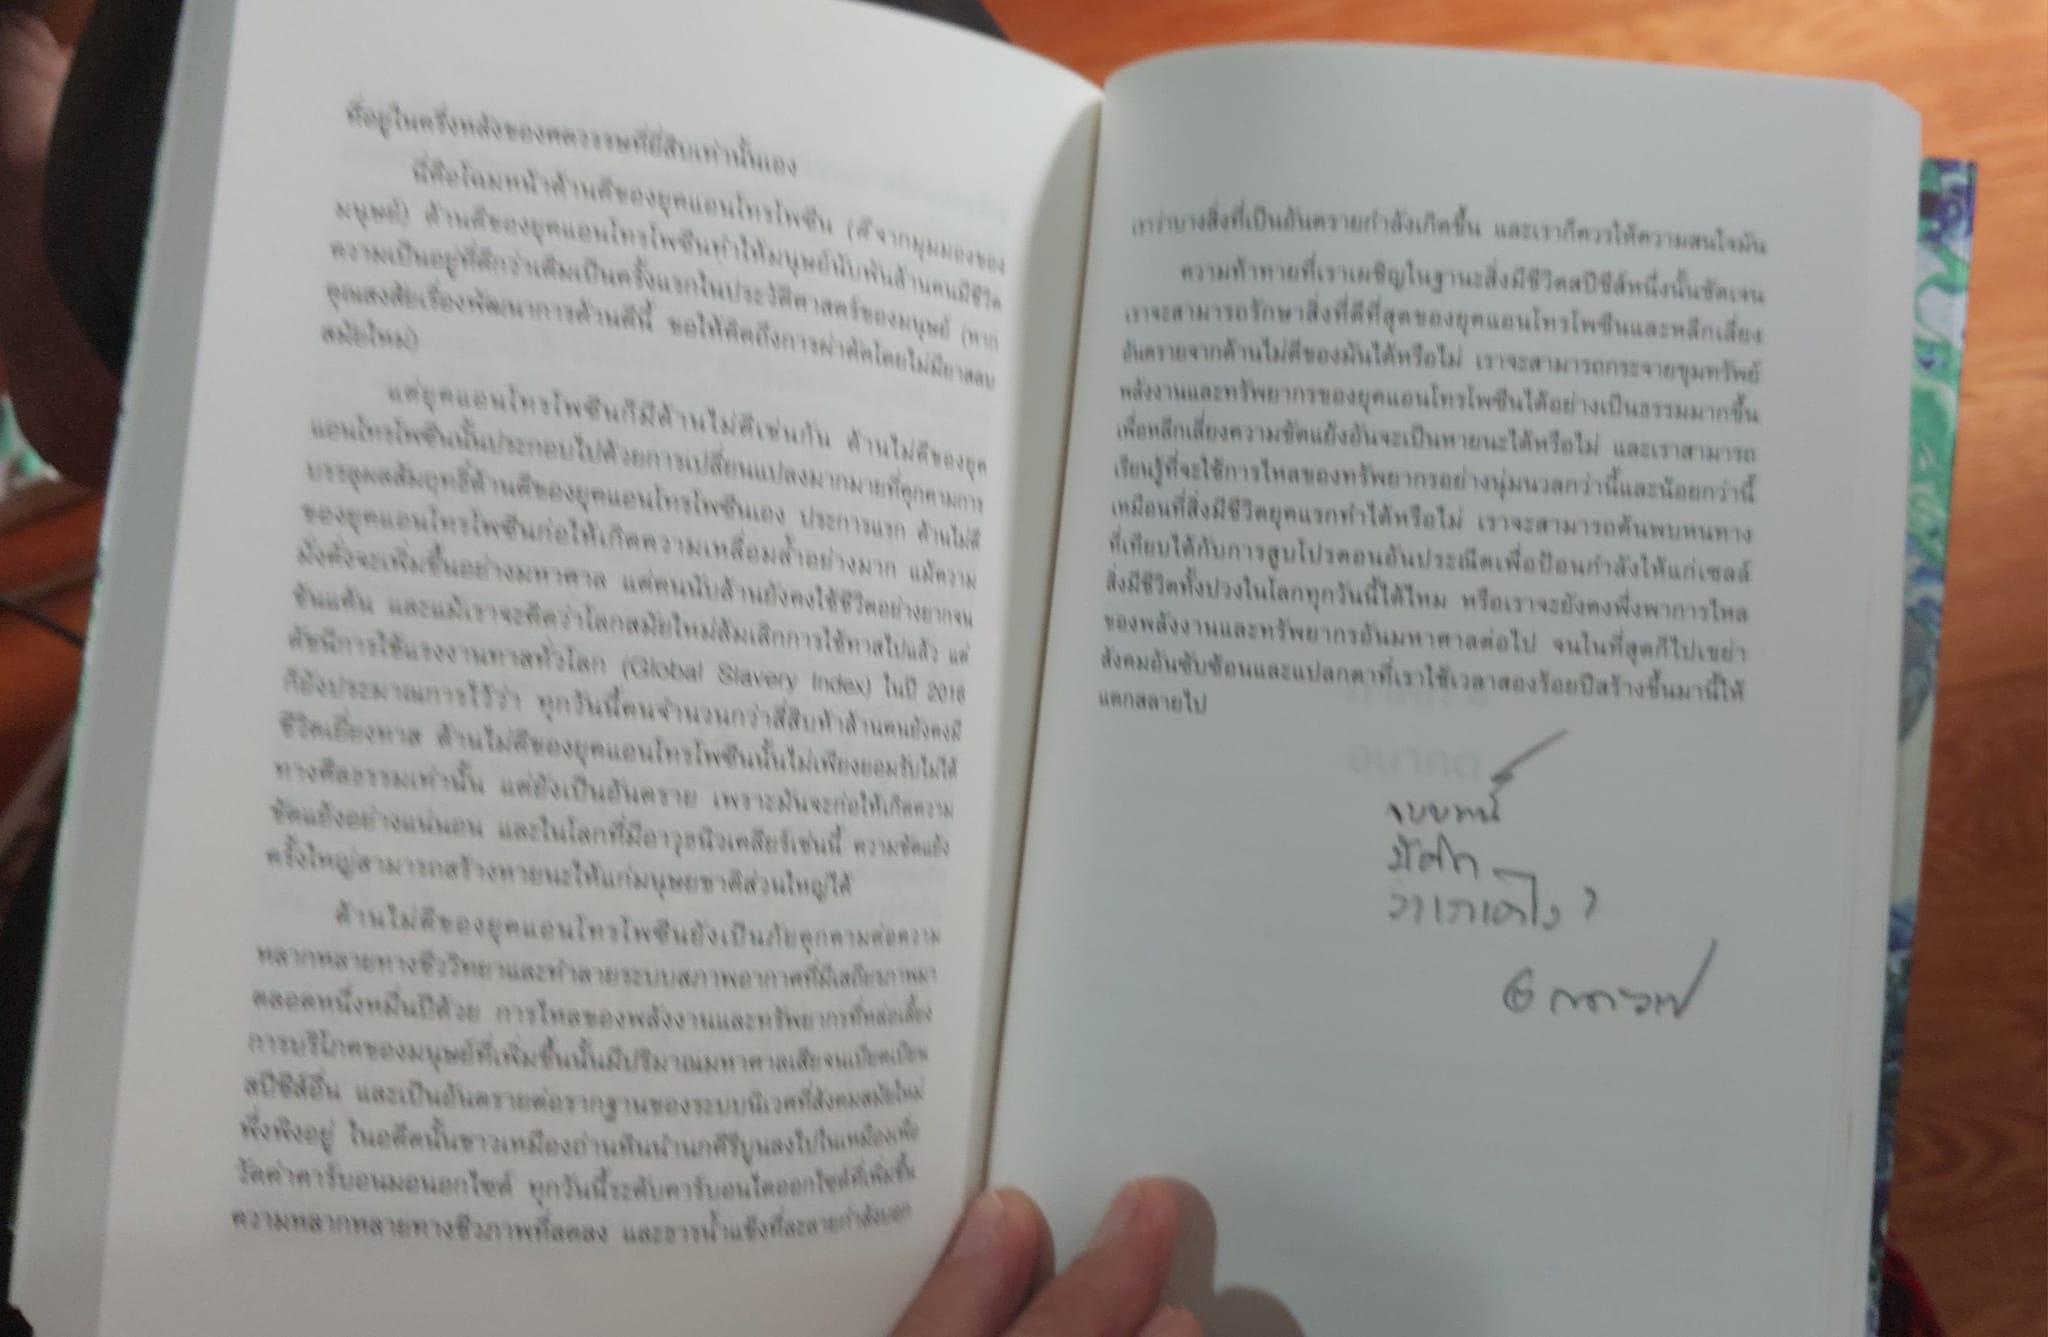 ที่อยู่ในครึ่งหลังของศตวรรษที่ยี่สิบเท่านั้นเอง
นี่คือโฉมหน้าด้านดีของยุคแอนโทรโพซีน (ดีจากมุมมองของ
มนุษย์) ด้านดีของยุคแอนโทรโพซีนทำให้มนุษย์นับพันล้านคนมีชีวิต
ความเป็นอยู่ที่ดีกว่าเดิมเป็นครั้งแรกในประวัติศาสตร์ของมนุษย์ (หาก
คุณสงสัยเรื่องพัฒนาการด้านดีนี้ ขอให้คิดถึงการผ่าตัดโดยไม่มียาสลบ
สมัยใหม่)
แต่ยุคแอนโทรโพซีนก็มีด้านไม่ดีเช่นกัน ด้านไม่ดีของยุค
แอนโทรโพซีนนั้นประกอบไปด้วยการเปลี่ยนแปลงมากมายที่คุกคามการ
บรรลุผลสัมฤทธิ์ด้านดีของยุคแอนโทรโพซีนเอง ประการแรก ด้านไม่ดี
ของยุคแอนโทรโพซีนก่อให้เกิดความเหลื่อมล้ำอย่างมาก แม้ความ
มั่งคั่งจะเพิ่มขึ้นอย่างมหาศาล แต่คนนับล้านยังคงใช้ชีวิตอย่างยากจน
ข้นแค้น และแม้เราจะคิดว่าโลกสมัยใหม่ล้มเลิกการใช้ทาสไปแล้ว แต่
ดัชนีการใช้แรงงานทาสทั่วโลก (Global Slavery Index) ในปี 2016
ก็ยังประมาณการไว้ว่า ทุกวันนี้คนจำนวนกว่าสี่สิบห้าล้านคนยังคงมี
ชีวิตเยี่ยงทาส ด้านไม่ดีของยุคแอนโทรโพซีนนั้นไม่เพียงยอมรับไม่ได้
ทางศีลธรรมเท่านั้น แต่ยังเป็นอันตราย เพราะมันจะก่อให้เกิดความ
ขัดแย้งอย่างแน่นอน และในโลกที่มีอาวุธนิวเคลียร์เช่นนี้ ความขัดแย้ง
ครั้งใหญ่สามารถสร้างหายนะให้แก่มนุษยชาติส่วนใหญ่ได้
ด้านไม่ดีของยุคแอนโทรโพซีนยังเป็นภัยคุกคามต่อความ
หลากหลายทางชีววิทยาและทำลายระบบสภาพอากาศที่มีเสถียรภาพมา
ตลอดหนึ่งหมื่นปีด้วย การไหลของพลังงานและทรัพยากรที่หล่อเลี้ยง
การบริโภคของมนุษย์ที่เพิ่มขึ้นนั้นมีปริมาณมหาศาลเสียจนเบียดเบียน
สปีชีส์อื่น และเป็นอันตรายต่อรากฐานของระบบนิเวศที่สังคมสมัยใหม่
พึ่งพิงอยู่ ในอดีตนั้นชาวเหมืองถ่านหินนำนกคีรีบูนลงไปในเหมืองเพื่อ
วัดค่าคาร์บอนมอนอกไซด์ ทุกวันนี้ระดับคาร์บอนไดออกไซด์ที่เพิ่มขึ้น
ความหลากหลายทางชีวภาพที่ลดลง และธารน้ำแข็งที่ละลายกำลังบอก
เราว่าบางสิ่งที่เป็นอันตรายกำลังเกิดขึ้น และเราก็ควรให้ความสนใจมัน
ความท้าทายที่เราเผชิญในฐานะสิ่งมีชีวิตสปีชีส์หนึ่งนั้นชัดเจน
เราจะสามารถรักษาสิ่งที่ดีที่สุดของยุคแอนโทรโพซีนและหลีกเลี่ยง
อันตรายจากด้านไม่ดีของมันได้หรือไม่ เราจะสามารถกระจายขุมทรัพย์
พลังงานและทรัพยากรของยุคแอนโทรโพซีนได้อย่างเป็นธรรมมากขึ้น
เพื่อหลีกเลี่ยงความขัดแย้งอันจะเป็นหายนะได้หรือไม่ และเราสามารถ
เรียนรู้ที่จะใช้การไหลของทรัพยากรอย่างนุ่มนวลกว่านี้และน้อยกว่านี้
เหมือนที่สิ่งมีชีวิตยุคแรกทำได้หรือไม่ เราจะสามารถค้นพบหนทาง
ที่เทียบได้กับการสูบโปรตอนอันประณีตเพื่อป้อนกำลังให้แก่เซลล์
สิ่งมีชีวิตทั้งปวงในโลกทุกวันนี้ได้ไหม หรือเราจะยังคงพึ่งพาการไหล
ของพลังงานและทรัพยากรอันมหาศาลต่อไป จนในที่สุดก็ไปเขย่า
สังคมอันซับซ้อนและแปลกตาที่เราใช้เวลาสองร้อยปีสร้างขึ้นมานี้ให้
แตกสลายไป